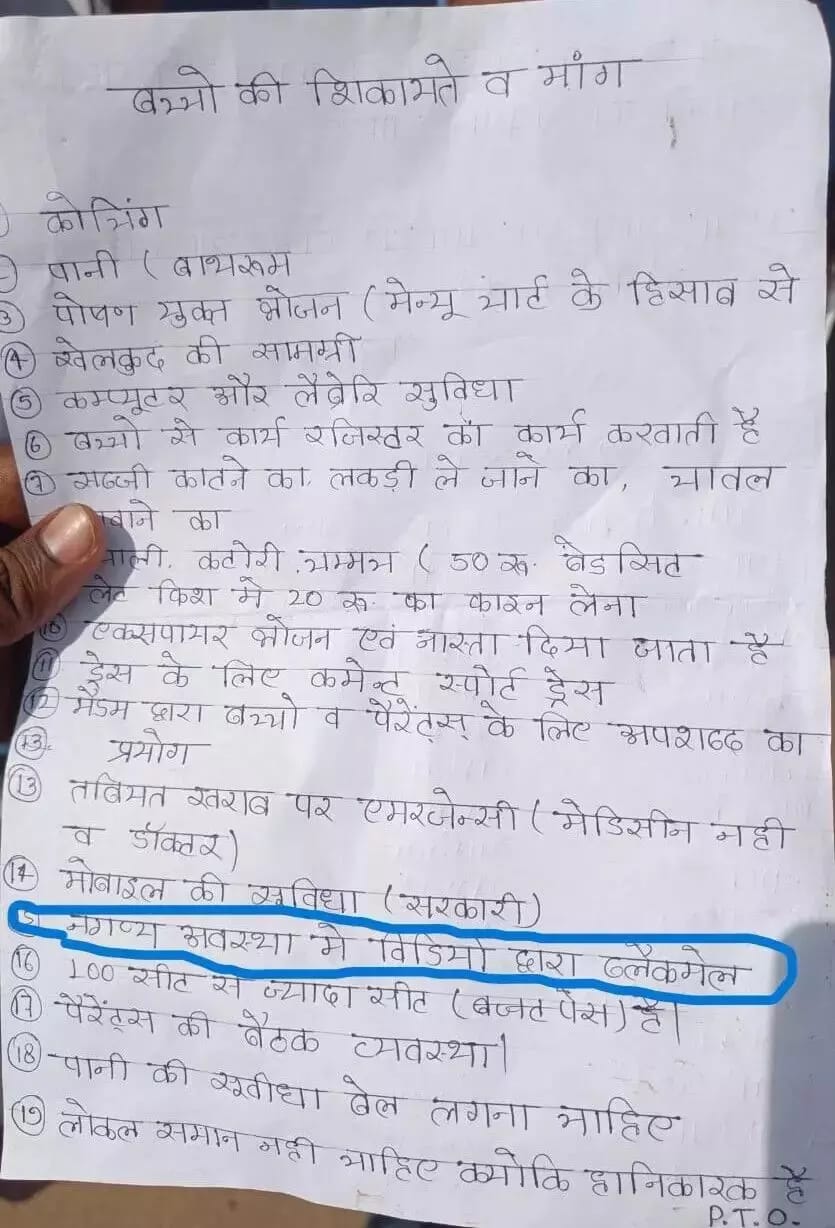 बच्चो की शिकायते व मांग
कोचिंग
पानी ( बाथरूम
3 पोषण युक्त भोजन ( मेन्यू चार्ट के हिसाब से
4 खेलकुद की सामग्री
5 कम्प्यूटर और लैब्रेरि सुविधा
6 बच्चो से कार्य रजिस्टर का कार्य करवाती है
7 सब्जी काटने का, लकड़ी ले जाने का, चावल
का
कटोरी, चम्मच ( 50 रू. बेडसिट
लेट फिश मे 20 रू. का फाइन लेना
10 एक्सपायर भोजन एवं नास्ता दिया जाता है
11 ड्रेस के लिए कमेन्ट स्पोर्ट ड्रेस
12 मैडम द्वारा बच्चो व पैरेंट्स् के लिए अपशब्द का
13. प्रयोग
13 तबियत खराब पर एमरजेन्सी ( मेडिसीन नही
व डॉक्टर)
14 मोबाइल की सुविधा (सरकारी)
अवस्था मे विडियो द्वारा ब्लैकमेल
16 100 सीट से ज्यादा सीट (बजट पैस) है।
17 पैरेंट्स की बैठक व्यवस्था।
18 पानी की सूवीधा बेल लगना चाहिए
19 लोकल समान नही चाहिए क्योकि हानिकारक है
P.T.O.